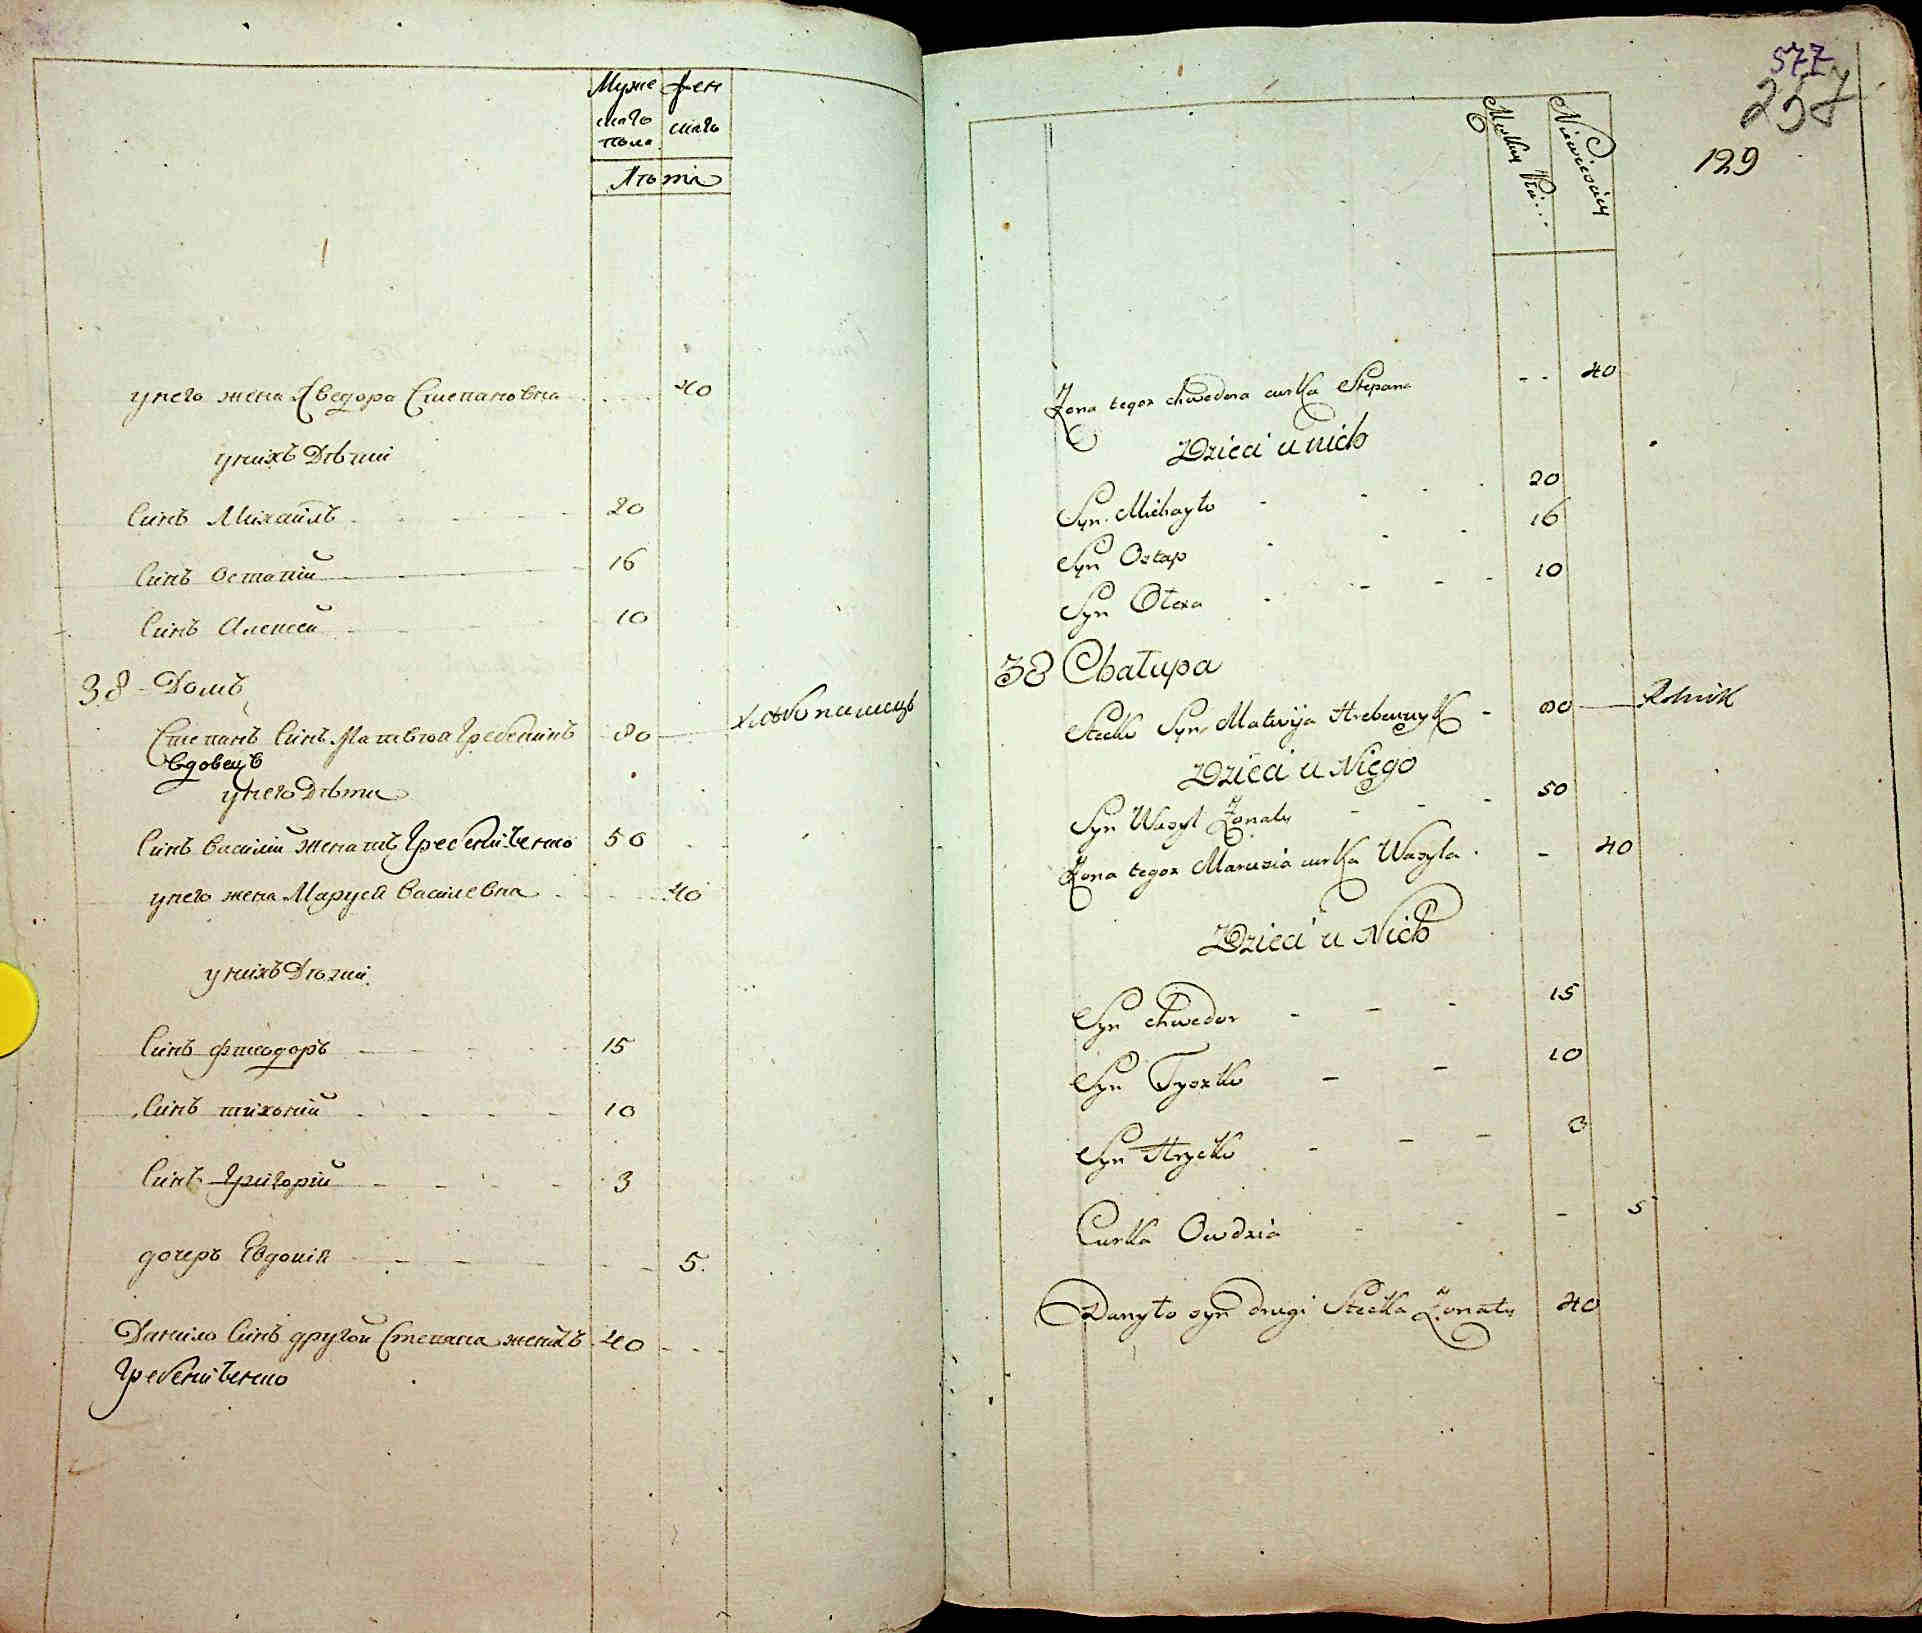 Муже Жен
скаго скаго
пола
Лѣта
у него жена Хведора Степановна 40
у нихъ Дѣти
Синъ Михаилъ 20
Синъ Остапій 16
Синъ Алексей 10
38 Домъ
Степанъ Синъ Матвѣя Гребенникъ 80 хлѣбопашецъ
вдовецъ
у него Дѣти
Синъ Василий женатъ 50
у него жена Маруся Василевна 40
у нихъ Дѣти
Синъ Фтеодоръ 15
Синъ тихоній 10
Синъ Григорій 3
дочеръ Евдокія 5
Данило Синъ другой Степана женатъ 40
577
257
129
Niewieściey
Żona tegoż Chwedora curka Stepana 40
Dzieci u nich
Syn Michayło 20
Syn Ostap 16
Syn Ołexa 10
38 Chałupa
Stecko Syn Matwija Hrebennyk 80 Rolnik
Dzieci u Niego
Syn Wasyl Żonaty 50
Żona tegoż Marusia curka Wasyla 40
Dzieci u Nich
Syn Chwedor 15
Syn Tyszko 10
Syn Hrycko 3
Curka Owdzia 5
Danyło syn drugi Stecka Żonaty 40